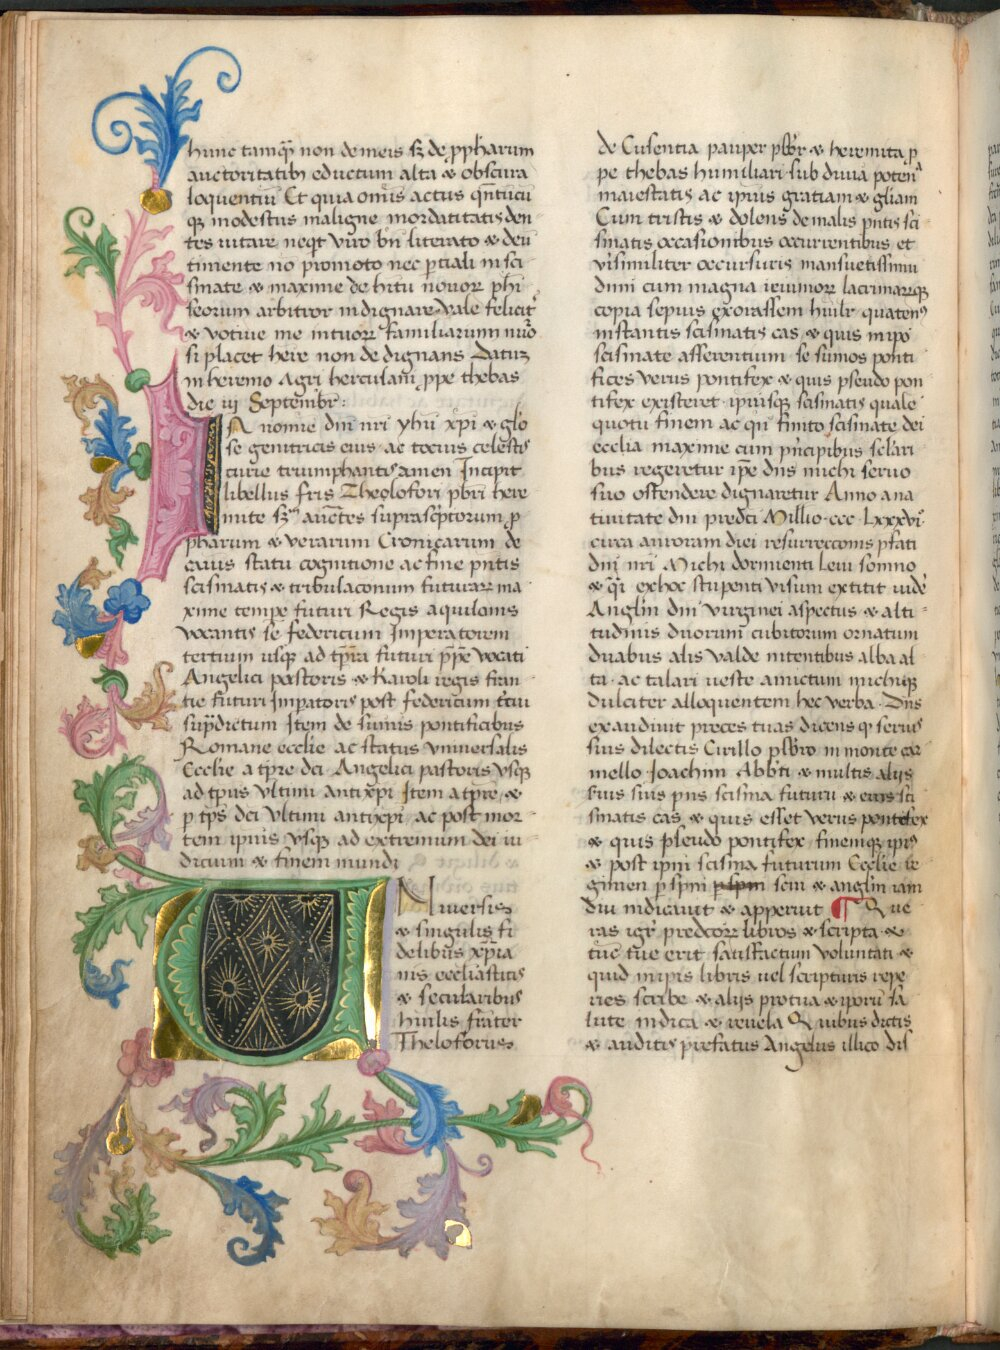 hunc tamq̄ non de meis sꝫ de ꝓpħarum
auctoritatibꝰ eductum alta & obscura
loquentiū Et quia om̄is actus qn̄tūcū
qꝫ modestus maligne mordatitatis den
tes uitare neqt viro bn̄ literato & deū
timente nō promoto nec ꝑtiali in sci
smate & maxime de hītu nouoꝝ phi
seorum arbitror indignare. Vale felicit̄
& votiue me intuoꝝ familiarum nūo
si placet hēre non de dignans Datuꝫ
in heremo Agri herculani ꝓpe thebas
die iij Septembr̄:
In nomīe dn̄i nr̄i yhū xp̄i & glo
se genitricis eius ac tocius celestis
curie triumphantis amen Incipit
libellus fr̄is Theolofori pbr̄i here
mite sꝫ auc̄tes suprascp̄torum ꝓ
pharum & verarum Cronicarum de
cuius statu cognitione ac fine pn̄tis
scismatis & tribulaconum futuraꝝ ma
xime tempe futuri Regis aquilonis
vocantis se federicum Imperatorem
tertium usqꝫ ad tp̄ra futuri pp̄e vocati
Angelici pastoris & Karoli regis fran
tie futuri Impatoris post federicum tꝰciū
sup̄dictum Item de sumis pontificibus
Romane ecclie ac status vniuersalis
Ecclie a tp̄re dci Angelici pastoris vsqꝫ
ad tpus vltimi antixp̄i Item a tp̄re &
ꝑ tp̄s dci vltimi antixp̄i ac post mor
tem ipius vsqꝫ ad extremum dei iu
dicium & finem mundi
Vniuersis
& singulis fi
delibus xp̄ia
nis eccl̄iasticis
& secularibus
humilis frāter
Theloforus
de Cusentia pauper pbr̄ & heremita ꝓ
pe thebas humiliari sub diuīa potenᵃ
maiestatis ac ipius gratiam & gl̄iam
Cum tristis & dolens de malis pn̄tis sci
smatis occasionibus occurrentibus et
visimiliter occursuris mansuetissimū
dn̄m cum magna ieiunioꝝ lacrimarqꝫ
copia sepius exorassem huīlr̄ quatenꝰ
instantis scismatis cās & quis in ipō
scismate asserentium se sūmos ponti
fices verus pontifex & quis pseudo pon
tifex existeret ipiusqꝫ scismatis quale
quotū finem ac qū finito scismate dei
ecclia maxime cum pn̄cipibus sclāri
bus regeretur ip̄e dn̄s michi seruo
suo ostendere dignaretur Anno ana
tiuitate dn̄i predc̄i Millio ccc Lxxxvi
circa auroram diei resurreccoīs pfati
dn̄i nr̄i Michi dormienti leui somno
& q̄i exhoc stupenti visum extitit uidē
Anglm̄ dn̄i virginei aspectus & alti
tudinis duorum cubitorum ornatum
duabus alis valde nitentibus alba al
ta ac talari ueste amictum michiqꝫ
dulciter alloquentem hec verba Dn̄s
exaudiuit preces tuas dicens q̄ seruis
suis dilectis Cirillo pbr̄o in monte car
mello Joachim Abb̄ti & multis alijs
suis pn̄s scisma futurū & eius sci
smatis cās & quis esset verus pontifex
& quis pseudo pontifex finemqꝫ ipiꝰ
& post ipm̄ scisma futurum Ecclie re
gimen ꝑ spm̄ scm̄ & anglm̄ iam
diu indicauit & apperuit ¶ Que
ras igr̄ predcoꝝ libros & scripta &
tūc tue erit satisfactum voluntati &
quid in ipis libris uel scripturis repe
ries scribe & alijs pro tua & ipoꝝ sa
lute indica & reuela Quibus dictis
& auditis prefatus Angelus illico dis